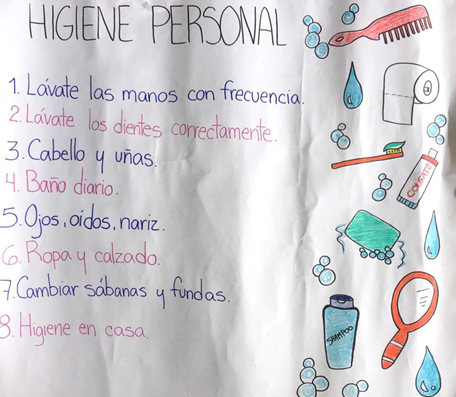 HIGIENE PERSONAL
1. Lávate las manos con frecuencia.
2. Lávate los dientes correctamente.
3. Cabello y uñas.
4. Baño diario.
5. Ojos, oidos, nariz.
6. Ropa y calzado.
7. Cambiar sábanas y fundas.
8. Higiene en casa.
COLGATE
SHAMPOO